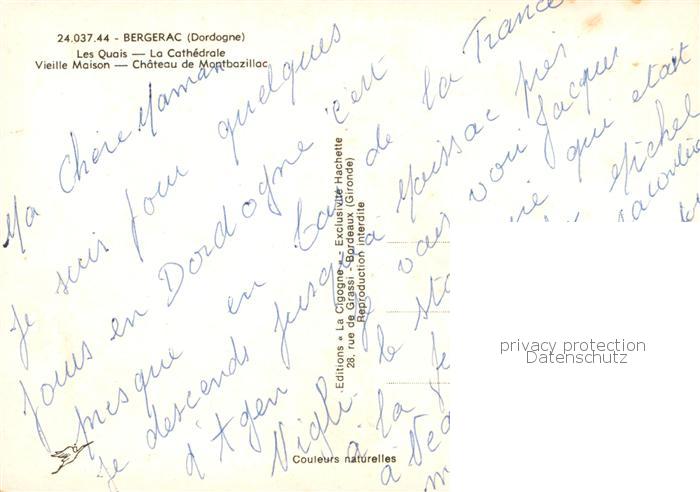 24.037.44 - BERGERAC (Dordogne)
Les Quais — La Cathédrale
Vieille Maison — Château de Montbazillac
Ma Chère Maman
Je suis pour quelques
jours en Dordogne c'est
presque en bas de la France
je descends jusqu'à Moissac près
d'Agen je vais voir Jacques
Nigli le qui était
à la Michel
à
Editions « La Cigogne » - Exclusivité Hachette
28, rue de Grassi - Bordeaux (Gironde)
Reproduction interdite
Couleurs naturelles
privacy protection
Datenschutz